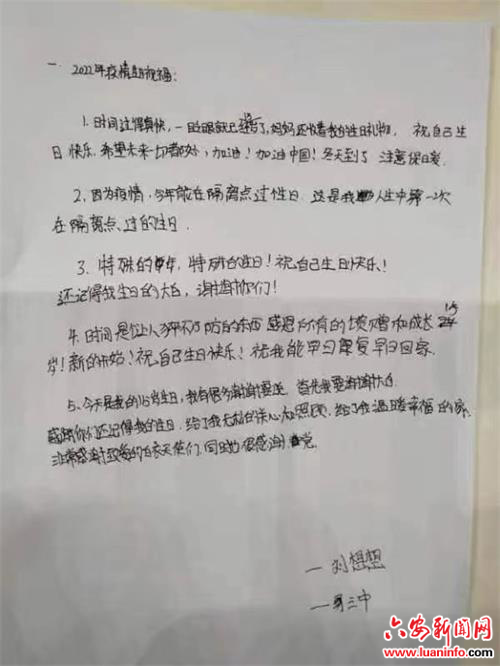 一. 2022年疫情期祝福:
1. 时间过得真快,一眨眼就已16岁了,妈妈还给我的生日礼物, 祝自己生
日快乐.希望未来一切都好,加油!加油中国!冬天到了 注意保暖
2、因为疫情,今年能在隔离点过生日.这是我人生中第一次
在隔离点、过的生日.
3、特殊的年,特殊的生日!祝自己生日快乐!
还记得我生日的大白,谢谢你们!
4. 时间是让人猝不及防的东西 感恩所有的馈赠和成长 16
岁!新的开始!祝自己生日快乐!祝我能早日康复早日回家.
5、今天是我的16岁生日,我有很多谢谢要送 首先我要谢谢大白
感谢你们还记得我的生日,给了我无私的关心和照顾,给了我温暖幸福的家.
非常感谢致敬的白衣天使们.同时也很感谢党.
一 刘想想
三中
六安新闻网
www.luaninfo.com